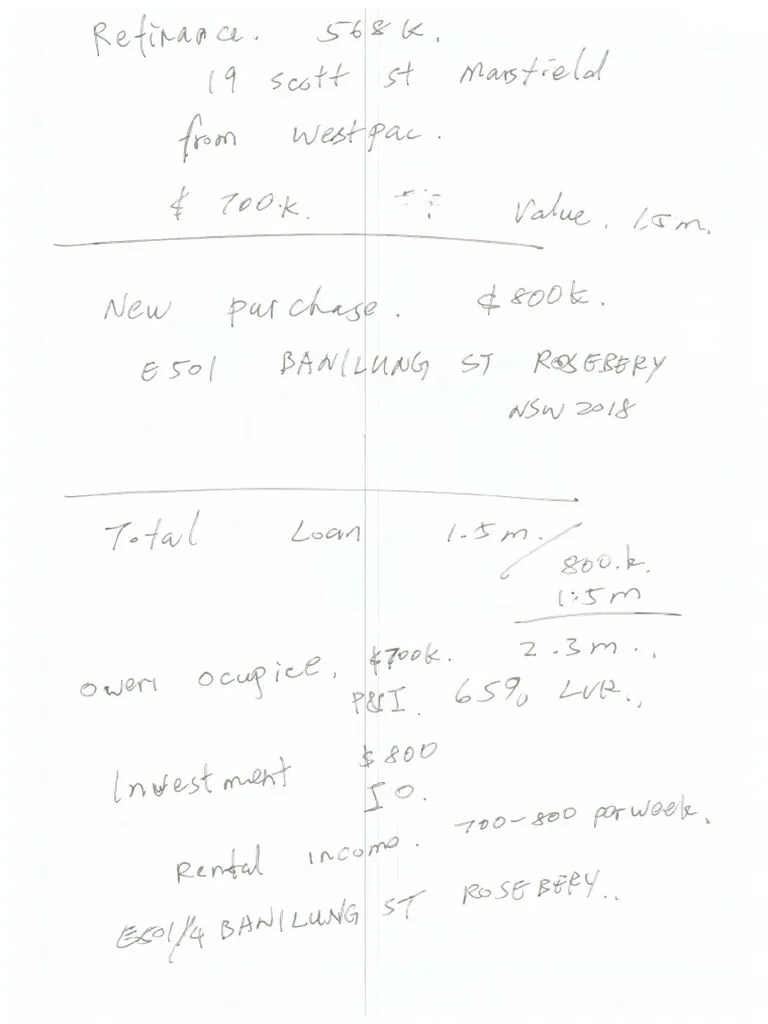 Refinance. 568k.
19 scott st Marsfield
from westpac.
$ 700.k. Value. 1.5m.
New purchase. $800k.
E501 BANILUNG ST ROSEBERY
NSW 2018
Total Loan 1.5m. / 800.k.
1.5m
2.3m.
owen ocupice. $700k.
P&I. 65% LVR.
Investment $800
IO.
Rental income. 700-800 per week.
E501/4 BANILUNG ST ROSEBERY..